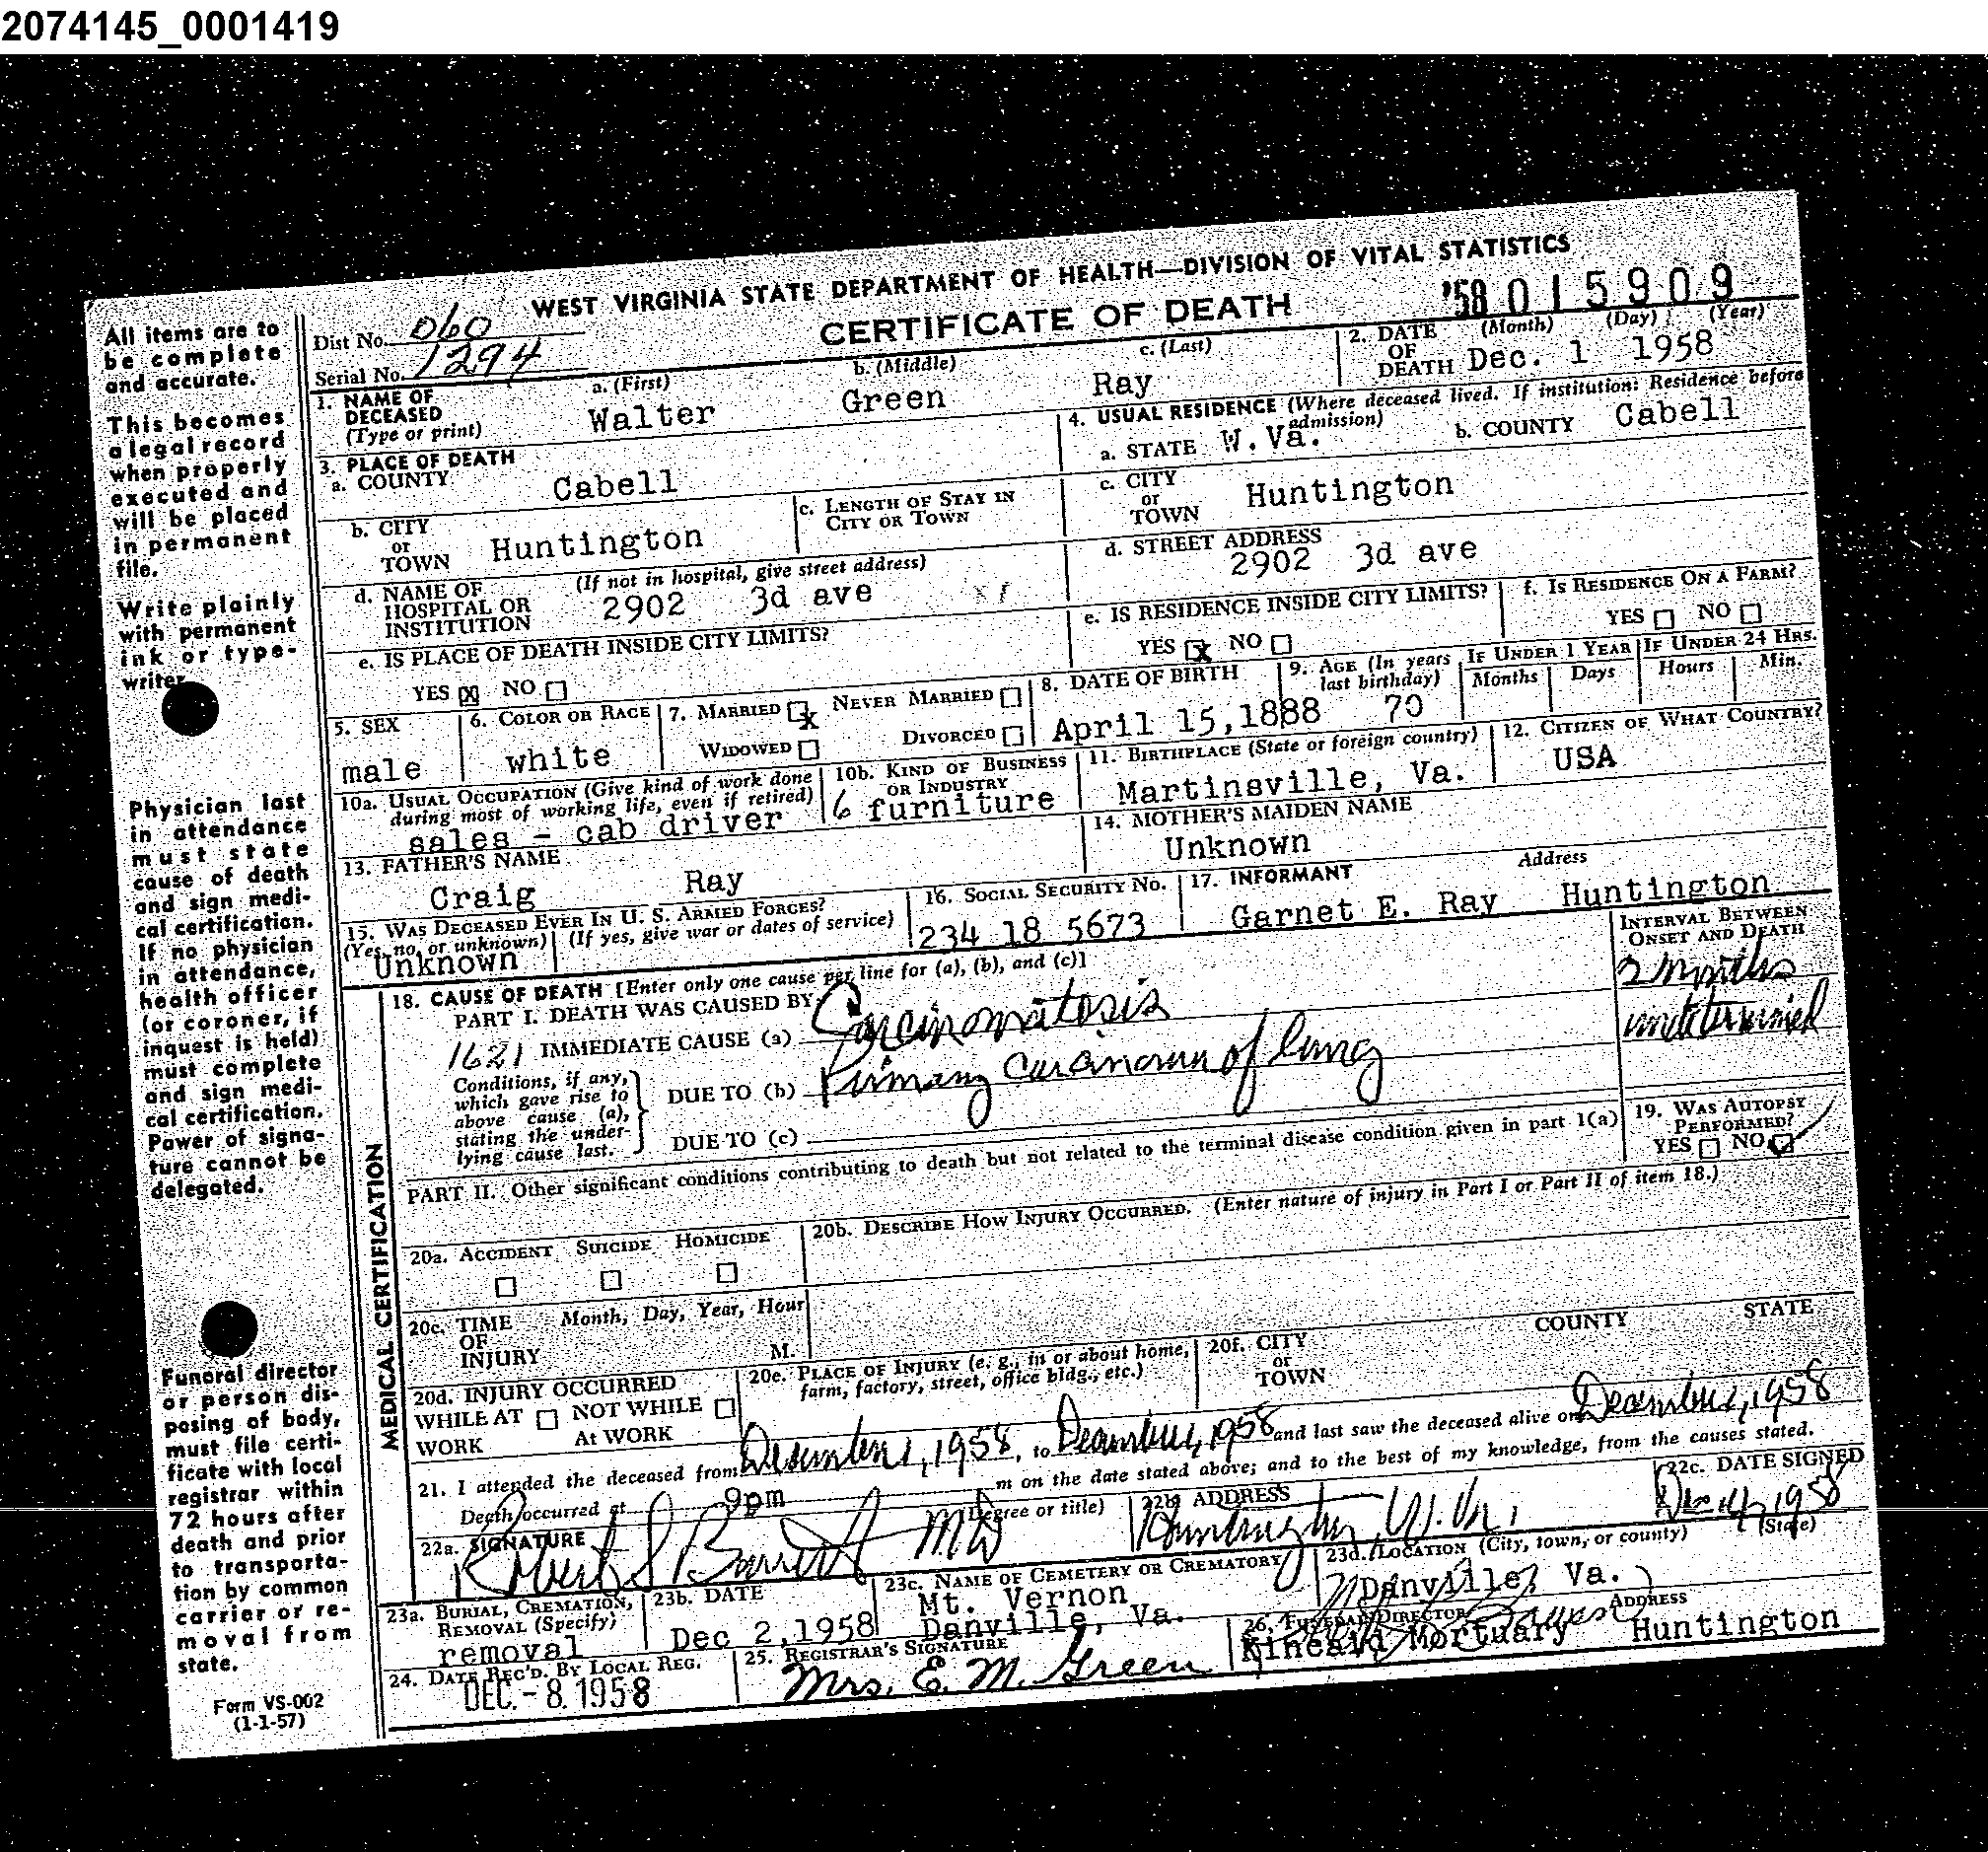 2074145_0001419
WEST VIRGINIA STATE DEPARTMENT OF HEALTH—DIVISION OF VITAL STATISTICS
CERTIFICATE OF DEATH
'58 015909
Dist No. 060
Serial No. 1294
All items are to
be complete
and accurate.
This becomes
a legal record
when properly
executed and
will be placed
in permanent
file.
Write plainly
with permanent
ink or type-
writer
Physician last
in attendance
must state
cause of death
and sign medi-
cal certification.
If no physician
in attendance,
health officer
(or coroner, if
inquest is held)
must complete
and sign medi-
cal certification.
Power of signa-
ture cannot be
delegated.
Funeral director
or person dis-
posing of body,
must file certi-
ficate with local
registrar within
72 hours after
death and prior
to transporta-
tion by common
carrier or re-
moval from
state.
Form VS-002
(1-1-57)
1. NAME OF DECEASED (Type or print) a. (First) Walter b. (Middle) Green c. (Last) Ray
2. DATE OF DEATH (Month) (Day) (Year) Dec. 1 1958
3. PLACE OF DEATH
a. COUNTY Cabell
b. CITY or TOWN Huntington
c. LENGTH OF STAY IN CITY OR TOWN
d. NAME OF HOSPITAL OR INSTITUTION (If not in hospital, give street address) 2902 3d ave
e. IS PLACE OF DEATH INSIDE CITY LIMITS?
YES x NO
4. USUAL RESIDENCE (Where deceased lived. If institution: Residence before admission)
a. STATE W.Va. b. COUNTY Cabell
c. CITY or TOWN Huntington
d. STREET ADDRESS 2902 3d ave
e. IS RESIDENCE INSIDE CITY LIMITS?
YES x NO
f. IS RESIDENCE ON A FARM?
YES NO
5. SEX male
6. COLOR OR RACE white
7. MARRIED x NEVER MARRIED
WIDOWED DIVORCED
8. DATE OF BIRTH April 15,1888
9. AGE (In years last birthday) 70
IF UNDER 1 YEAR Months Days
IF UNDER 24 HRS. Hours Min.
10a. USUAL OCCUPATION (Give kind of work done during most of working life, even if retired) sales - cab driver
10b. KIND OF BUSINESS OR INDUSTRY 6 furniture
11. BIRTHPLACE (State or foreign country) Martinsville, Va.
12. CITIZEN OF WHAT COUNTRY? USA
13. FATHER'S NAME Craig Ray
14. MOTHER'S MAIDEN NAME Unknown
15. WAS DECEASED EVER IN U. S. ARMED FORCES?
(Yes, no, or unknown) (If yes, give war or dates of service)
Unknown
16. SOCIAL SECURITY NO. 234 18 5673
17. INFORMANT Address
Garnet E. Ray Huntington
MEDICAL CERTIFICATION
18. CAUSE OF DEATH [Enter only one cause per line for (a), (b), and (c)]
INTERVAL BETWEEN ONSET AND DEATH
PART I. DEATH WAS CAUSED BY:
1621 IMMEDIATE CAUSE (a) Carcinomatosis 2 months
Conditions, if any, which gave rise to above cause (a), stating the underlying cause last.
DUE TO (b) Primary carcinoma of lung undetermined
DUE TO (c)
PART II. Other significant conditions contributing to death but not related to the terminal disease condition given in part I(a)
19. WAS AUTOPSY PERFORMED?
YES NO ✓
20a. ACCIDENT SUICIDE HOMICIDE
20b. DESCRIBE HOW INJURY OCCURRED. (Enter nature of injury in Part I or Part II of item 18.)
20c. TIME OF INJURY Month, Day, Year, Hour M.
20d. INJURY OCCURRED
WHILE AT WORK NOT WHILE At WORK
20e. PLACE OF INJURY (e. g., in or about home, farm, factory, street, office bldg., etc.)
20f. CITY or TOWN COUNTY STATE
21. I attended the deceased from December 1, 1958, to December 1, 1958 and last saw the deceased alive on December 1, 1958
Death occurred at 9pm m on the date stated above; and to the best of my knowledge, from the causes stated.
22a. SIGNATURE (Degree or title) Robert S Barrett MD
22b. ADDRESS Huntington, W. Va.
22c. DATE SIGNED Dec. 4, 1958
23a. BURIAL, CREMATION, REMOVAL (Specify) removal
23b. DATE Dec 2,1958
23c. NAME OF CEMETERY OR CREMATORY Mt. Vernon
Danville, Va.
23d. LOCATION (City, town, or county) (State) Danville, Va.
24. DATE REC'D. BY LOCAL REG. DEC. - 8. 1958
25. REGISTRAR'S SIGNATURE Mrs. E. M. Green
26. FUNERAL DIRECTOR ADDRESS
Kincaid Mortuary Huntington